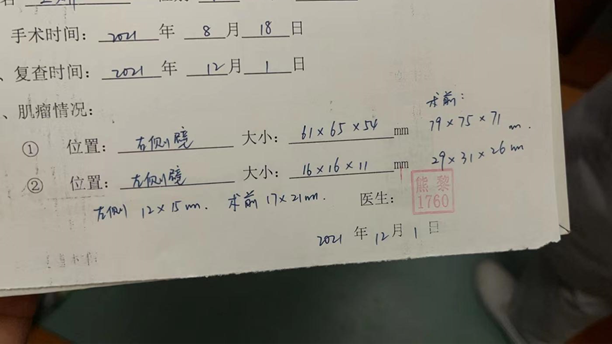 手术时间: 2021 年 8 月 18 日
、复查时间: 2021 年 12 月 1 日
、肌瘤情况:
术前:
① 位置: 右侧壁 大小: 61×65×54 mm 79×75×71 mm
② 位置: 左侧壁 大小: 16×16×11 mm 29×31×26 mm
左侧 12×15mm. 术前 17×21mm.
医生: 熊黎
1760
2021 年 12 月 1 日